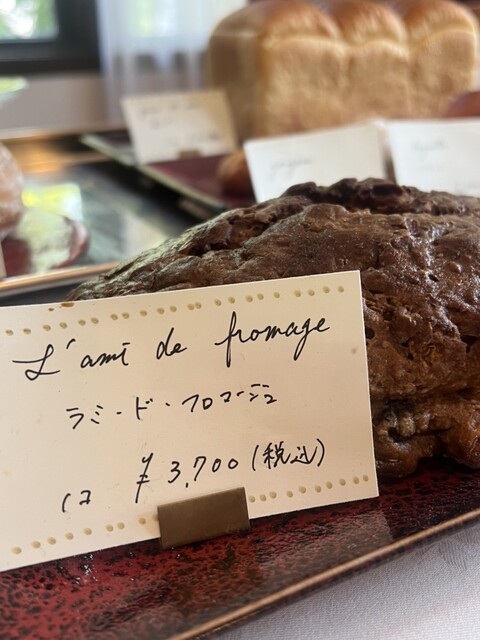 L'ami de fromage
ラミ・ド・フロマージュ
1コ ¥3,700(税込)